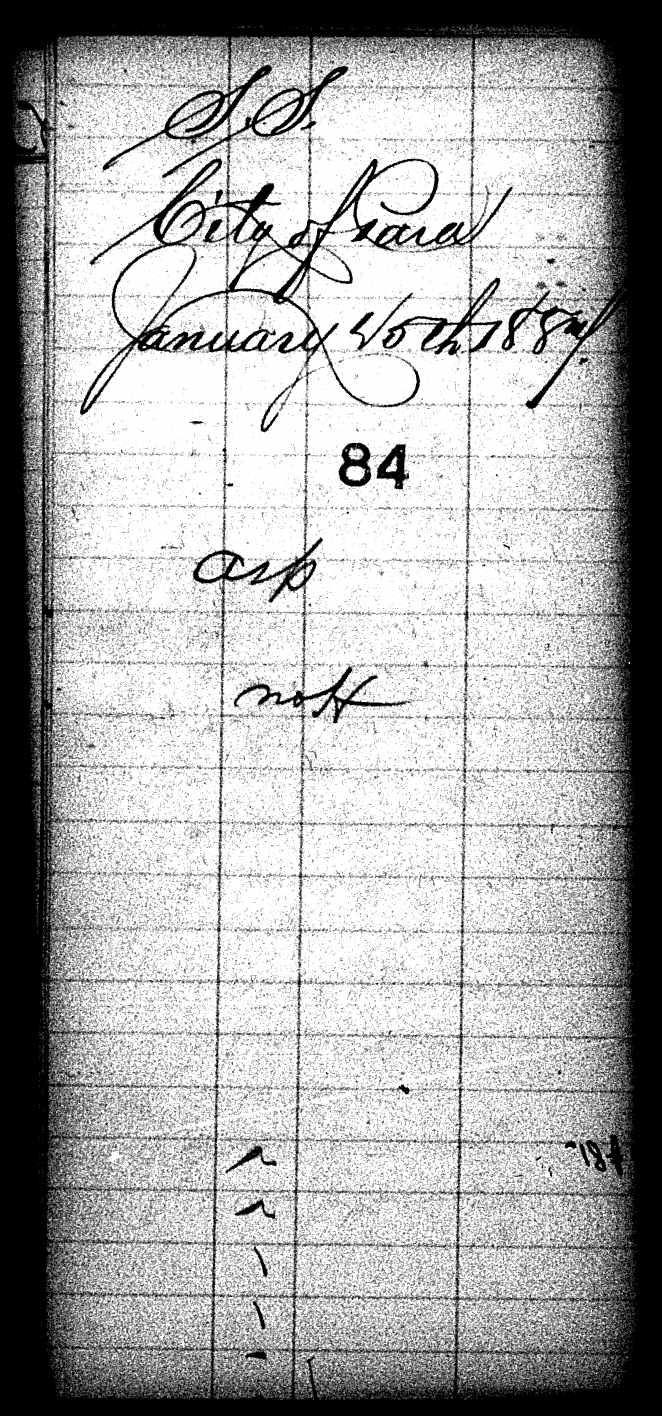 S.S.
City of Para
January 20th 1884.
84
asp